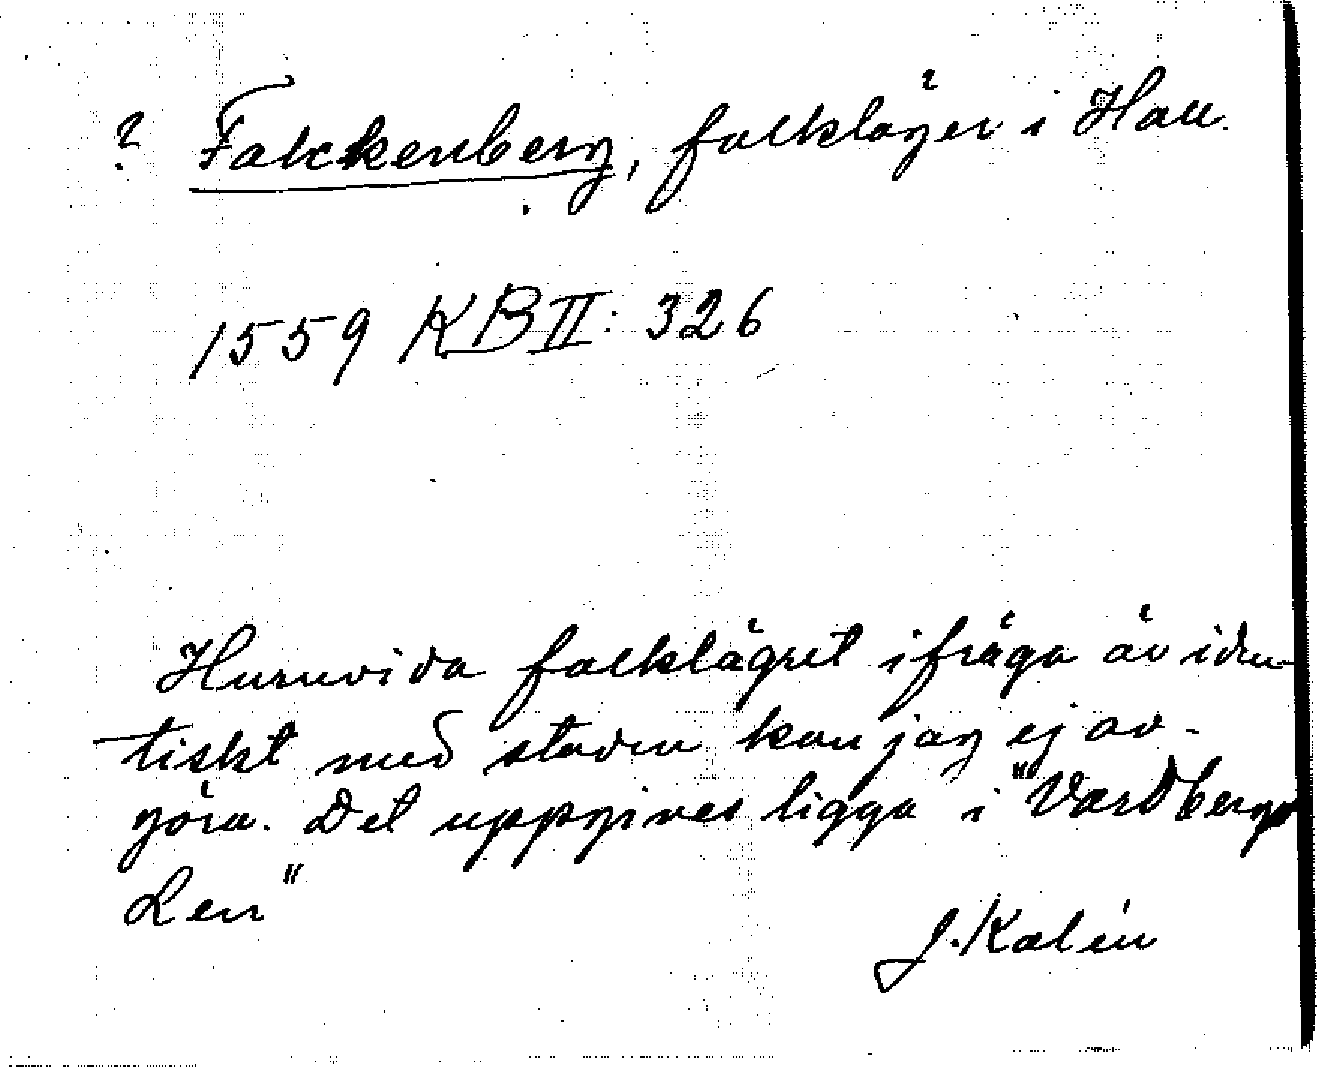 ? Falckenberg, folkläger i Hall.
1559 KB II: 326
Huruvida folklägret ifråga är iden-
tiskt med staden kan jag ej av-
göra. Det uppgives ligga i "Vardbergs
Len"
J. Kalén